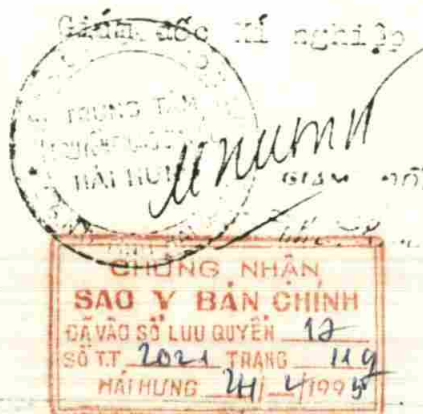 Giám đốc Xí nghiệp
TRUNG TÂM
HẢI HƯNG
GIÁM ĐỐC
CHỨNG NHẬN
SAO Y BẢN CHÍNH
ĐÃ VÀO SỔ LƯU QUYỂN 12
SỐ T.T 2021 TRANG 119
HẢI HƯNG 24/4/1995